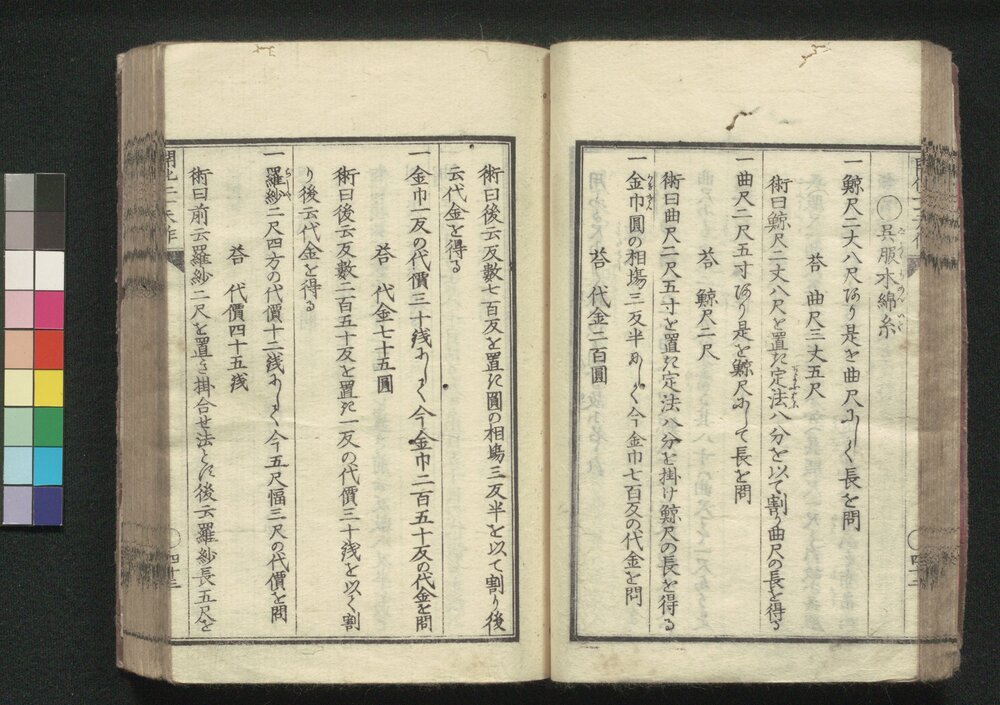 ○呉服木綿糸
一鯨尺二丈八尺あり是を曲尺にして長を問
答　曲尺三丈五尺
術曰鯨尺二丈八尺を置き定法八分を以て割り曲尺の長を得る
一曲尺二尺五寸あり是を鯨尺にして長を問
答　鯨尺二尺
術曰曲尺二尺五寸を置き定法八分を掛け鯨尺の長を得る
一金巾圓の相場三反半にして今金巾七百反の代金を問
答　代金二百圓
四十二
術曰後云反數七百反を置き圓の相場三反半を以て割り後
云代金を得る
一金巾一反の代價三十銭にして今金巾二百五十反の代金を問
答　代金七十五圓
術曰後云反數二百五十反を置き一反の代價三十銭を以て割
り後云代金を得る
一羅紗二尺四方の代價十二銭にして今五尺幅三尺の代價を問
答　代價四十五銭
術曰前云羅紗二尺を置き掛合せ法とし後云羅紗長五尺を
四十三